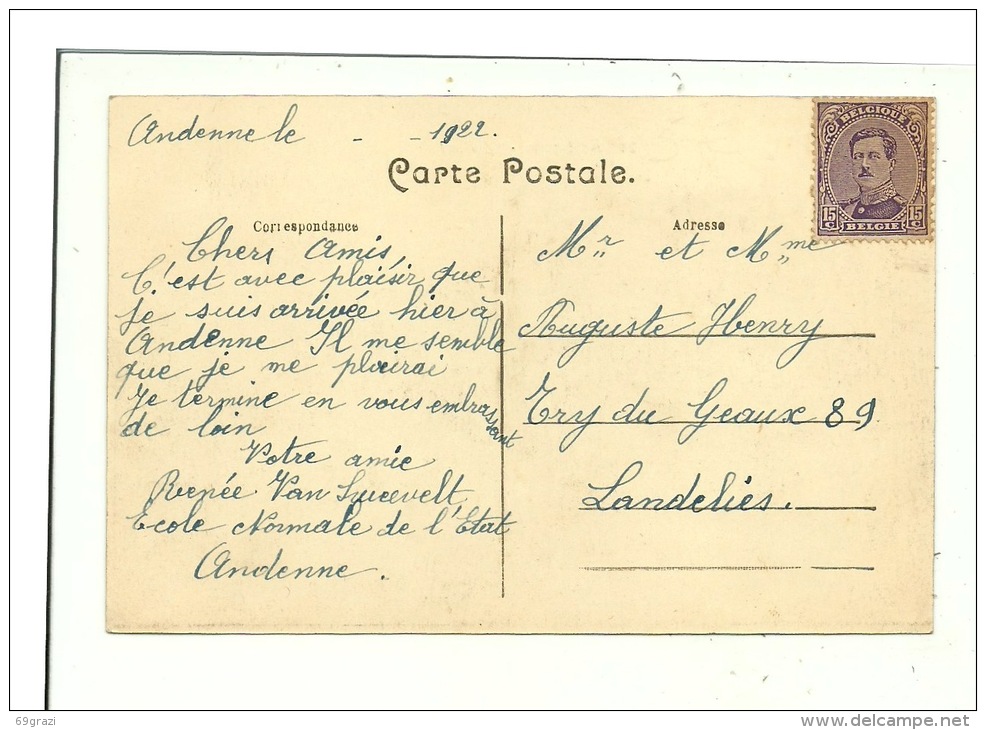 Andenne le - - 1922.
BELGIQUE
15 c 15 c
BELGIE
Carte Postale.
Correspondance
Chers Amis
C'est avec plaisir que
je suis arrivée hier à
Andenne Il me semble
que je me plairai
Je termine en vous embrassant
de loin
Votre amie
Renée Van
Ecole Normale de l'Etat
Andenne.
Adresse
Mr et Mme
Auguste Henry
Try du Geaux 89
Landeliés.
69grazi
www.delcampe.net